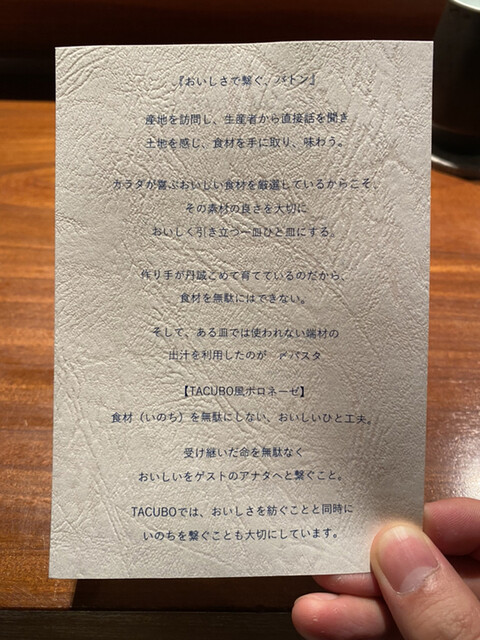 『おいしさで繋ぐ、バトン』
産地を訪問し、生産者から直接話を聞き
土地を感じ、食材を手に取り、味わう。
カラダが喜ぶおいしい食材を厳選しているからこそ、
その素材の良さを大切に
おいしく引き立つ一皿ひと皿にする。
作り手が丹誠こめて育てているのだから、
食材を無駄にはできない。
そして、ある皿では使われない端材の
出汁を利用したのが 〆パスタ
【TACUBO風ボロネーゼ】
食材（いのち）を無駄にしない、おいしいひと工夫。
受け継いだ命を無駄なく
おいしいをゲストのアナタへと繋ぐこと。
TACUBOでは、おいしさを紡ぐことと同時に
いのちを繋ぐことも大切にしています。